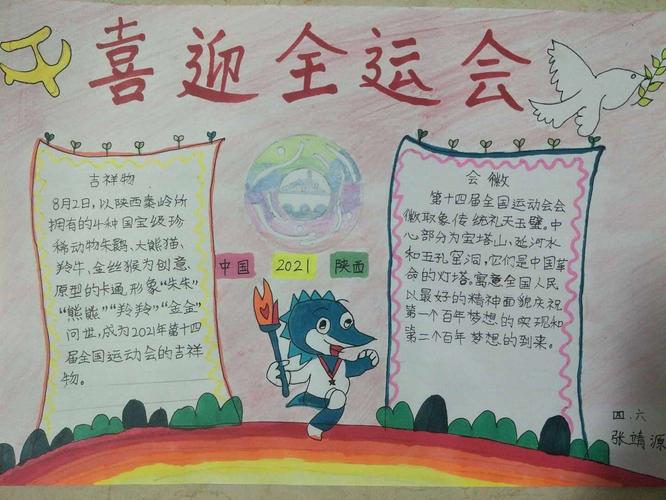 喜迎全运会
吉祥物
8月2日，以陕西秦岭所
拥有的4种国宝级珍
稀动物朱鹮、大熊猫、
羚牛、金丝猴为创意
原型的卡通，形象“朱朱”
“熊熊”“羚羚”“金金”
问世，成为2021年第十四
届全国运动会的吉祥
物。
中国
2021
陕西
会徽
第十四届全国运动会会
徽取象传统礼天玉璧。中
心部分为宝塔山、延河水
和五孔窑洞，它们是中国革
命的灯塔。寓意全国人民
以最好的精神面貌庆祝
第一个百年梦想的实现和
第二个百年梦想的到来。
四.六
张靖源